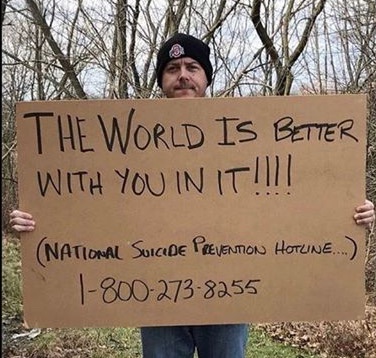 THE WORLD IS BETTER
WITH YOU IN IT!!!!
(NATIONAL SUICIDE PREVENTION HOTLINE....)
1-800-273-8255